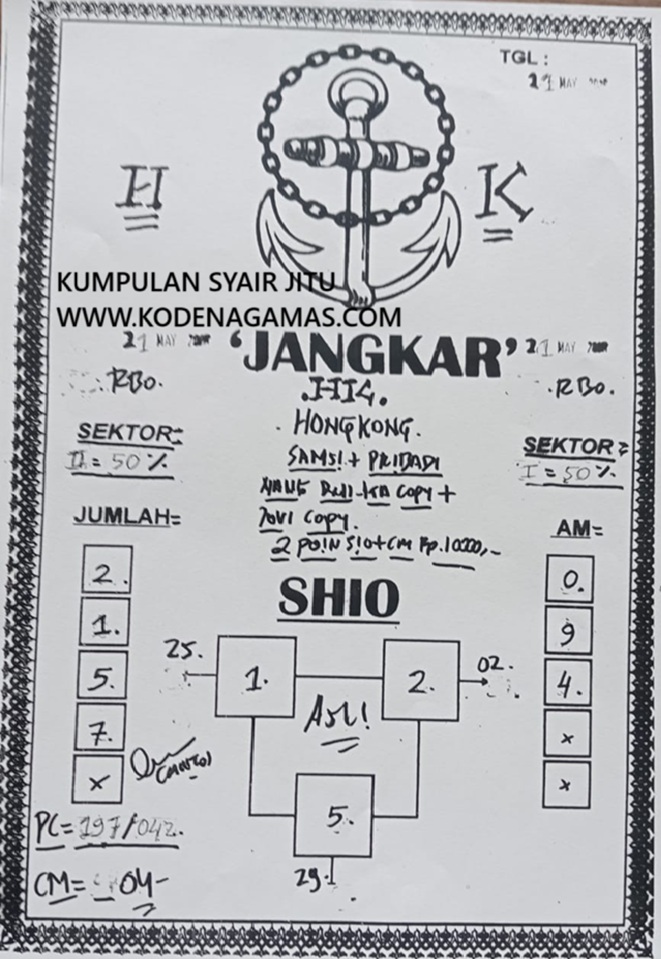 TGL :
21 MAY
H K
KUMPULAN SYAIR JITU
WWW.KODENAGAMAS.COM
21 MAY 'JANGKAR' 21 MAY
RBO. .HK. RBO.
HONGKONG.
SEKTOR: SEKTOR:
II = 50% I = 50%
SAMSI + PRIBADI
COPY +
JOVI COPY.
2 POIN SIO+CM Rp.10000,-
JUMLAH= AM=
2. 0.
1. 9
5. 4.
7. x
x x
SHIO
25. 1. 2. 02.
ASLI!
5.
29.
PC= 197/042.
CM= 04-